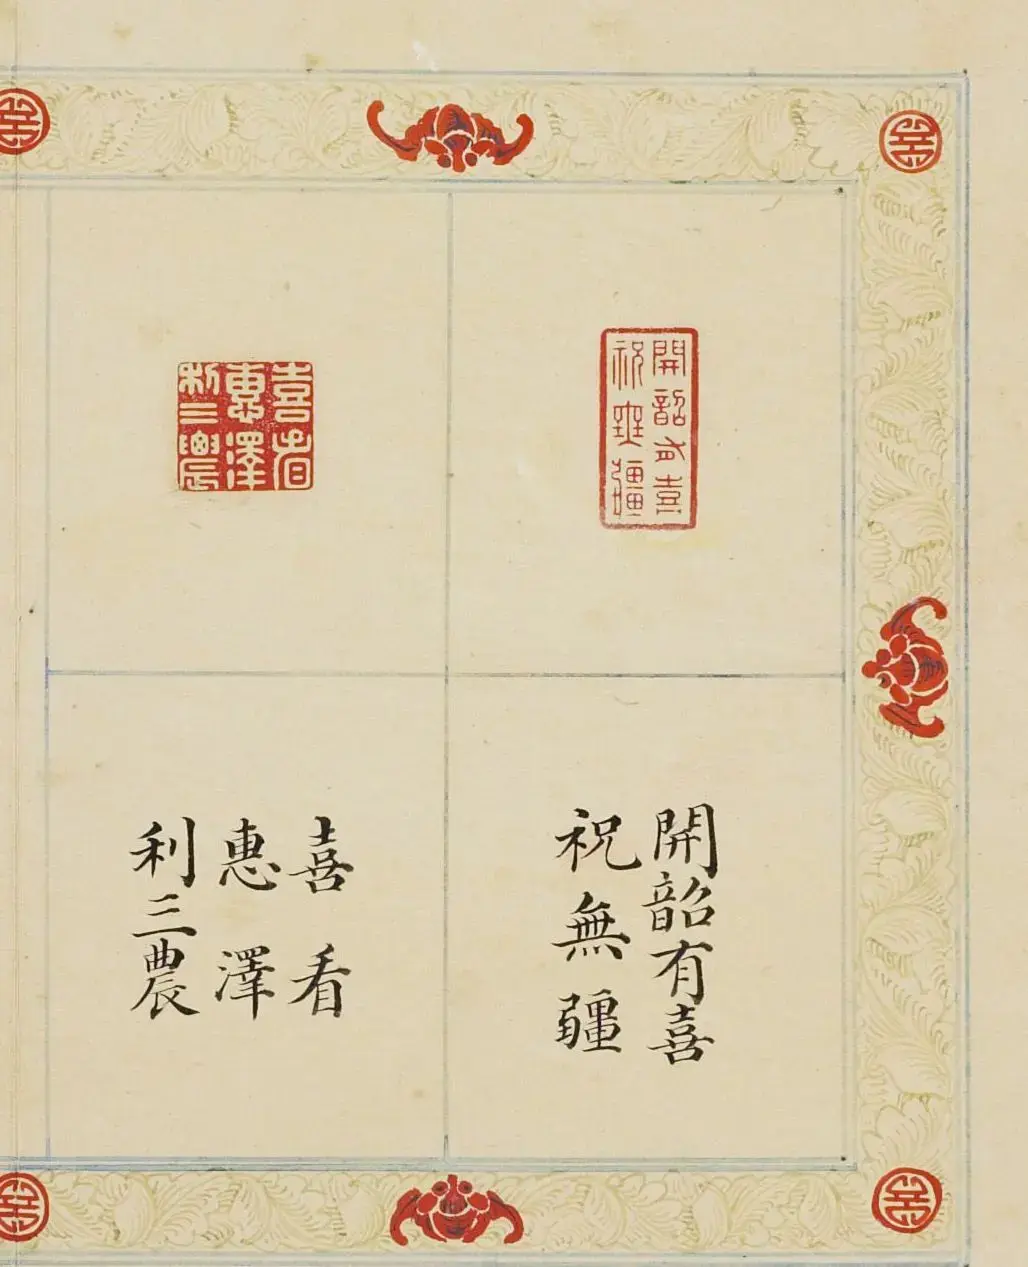 開韶有喜
祝無疆
喜看
惠澤
利三農
開韶有喜
祝無疆
喜看
惠澤
利三農